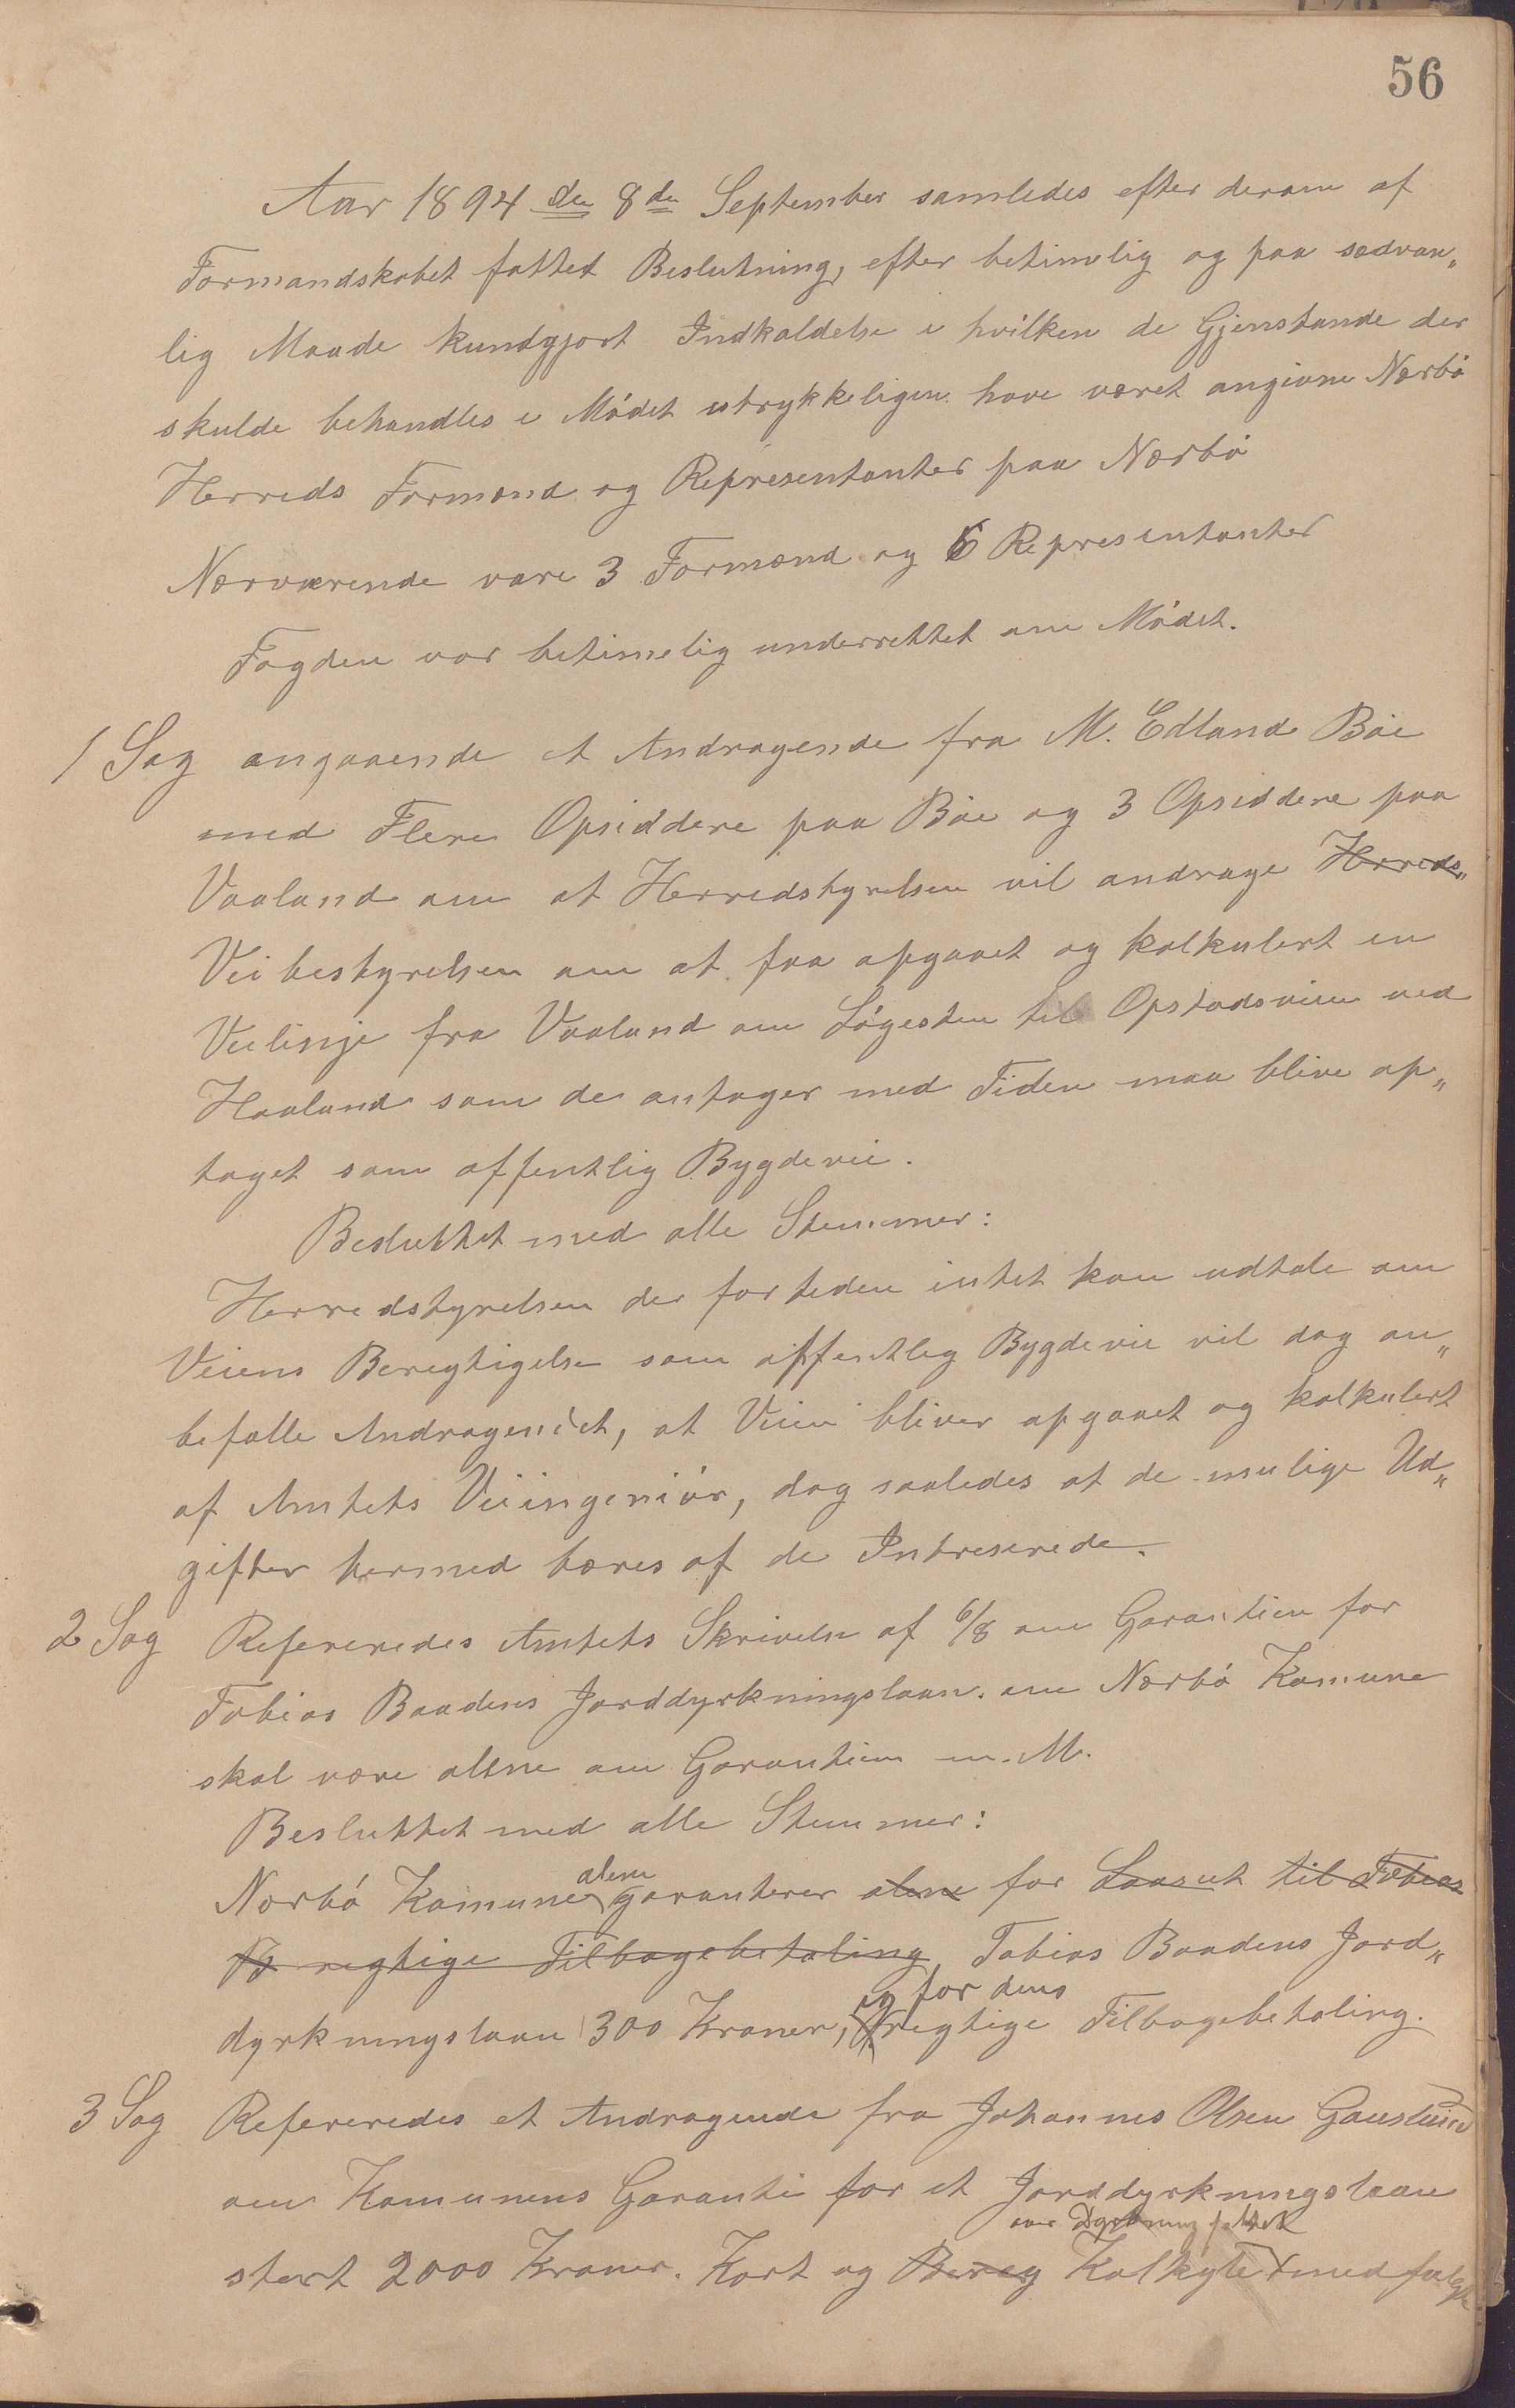 56
Aar 1894 den 8de September samledes efter derom af
Formandskabet fattet Beslutning, efter betimelig og paa sædvan„
lig Maade kundgjort Indkaldelse i hvilken de Gjenstande der
skulde behandles i Mödet utrykkeligen have været angivne Nærbö
Herreds Formænd og Representanter paa Nærbö
Nærværende vare 3 Formænd og 6 Representanter
Fogden var betimelig underrettet om Mödet.
1 Sag angaaende et Andragende fra M. Edland Böe
med Flere Opsiddere paa Böe og 3 Opsiddere paa
Vaaland om at Herredstyrelsen vil andrage Herreds„
Veibestyrelsen om at faa opgaaet og kalkulert en
Veilinje fra Vaaland om Lögesten til Opstadsveien ved
Haaland som de antager med Tiden maa blive op„
taget som offentlig Bygdevei.
Besluttet med alle Stemmer:
Herredstyrelsen der for tiden intet kan udtale om
Veiens Beregtigelse som offentleg Bygdevei vil dog an„
befalle Andragendet, at Veien bliver opgaaet og kalkulert
af Amtets Veiingeniör, dog saaledes at de mulige Ud„
gifter hermed bæres af de Intreserede.
2 Sag Refereredes Amtets Skrivelse af 6/8 om Garantien for
Tobias Baadens Jorddyrkningslaan. om Nærbö Komune
skal være allene om Garantien m. M.
Besluttet med alle Stemmer:
alene
Nærbö Komune garanterer alene for Laanet til Tobias
B regtige Tilbagebetaling Tobias Baadens Jord„
og for dens
dyrkningslaan 300 Kroner, regtige Tilbagebetaling.
3 Sag Refereredes et Andragende fra Johannes Olsen
om Komunens Garanti for et Jorddyrkningslaan
over Dyrkning
stort 2000 Kroner. Kart og Bereg Kalkyle medfulgte